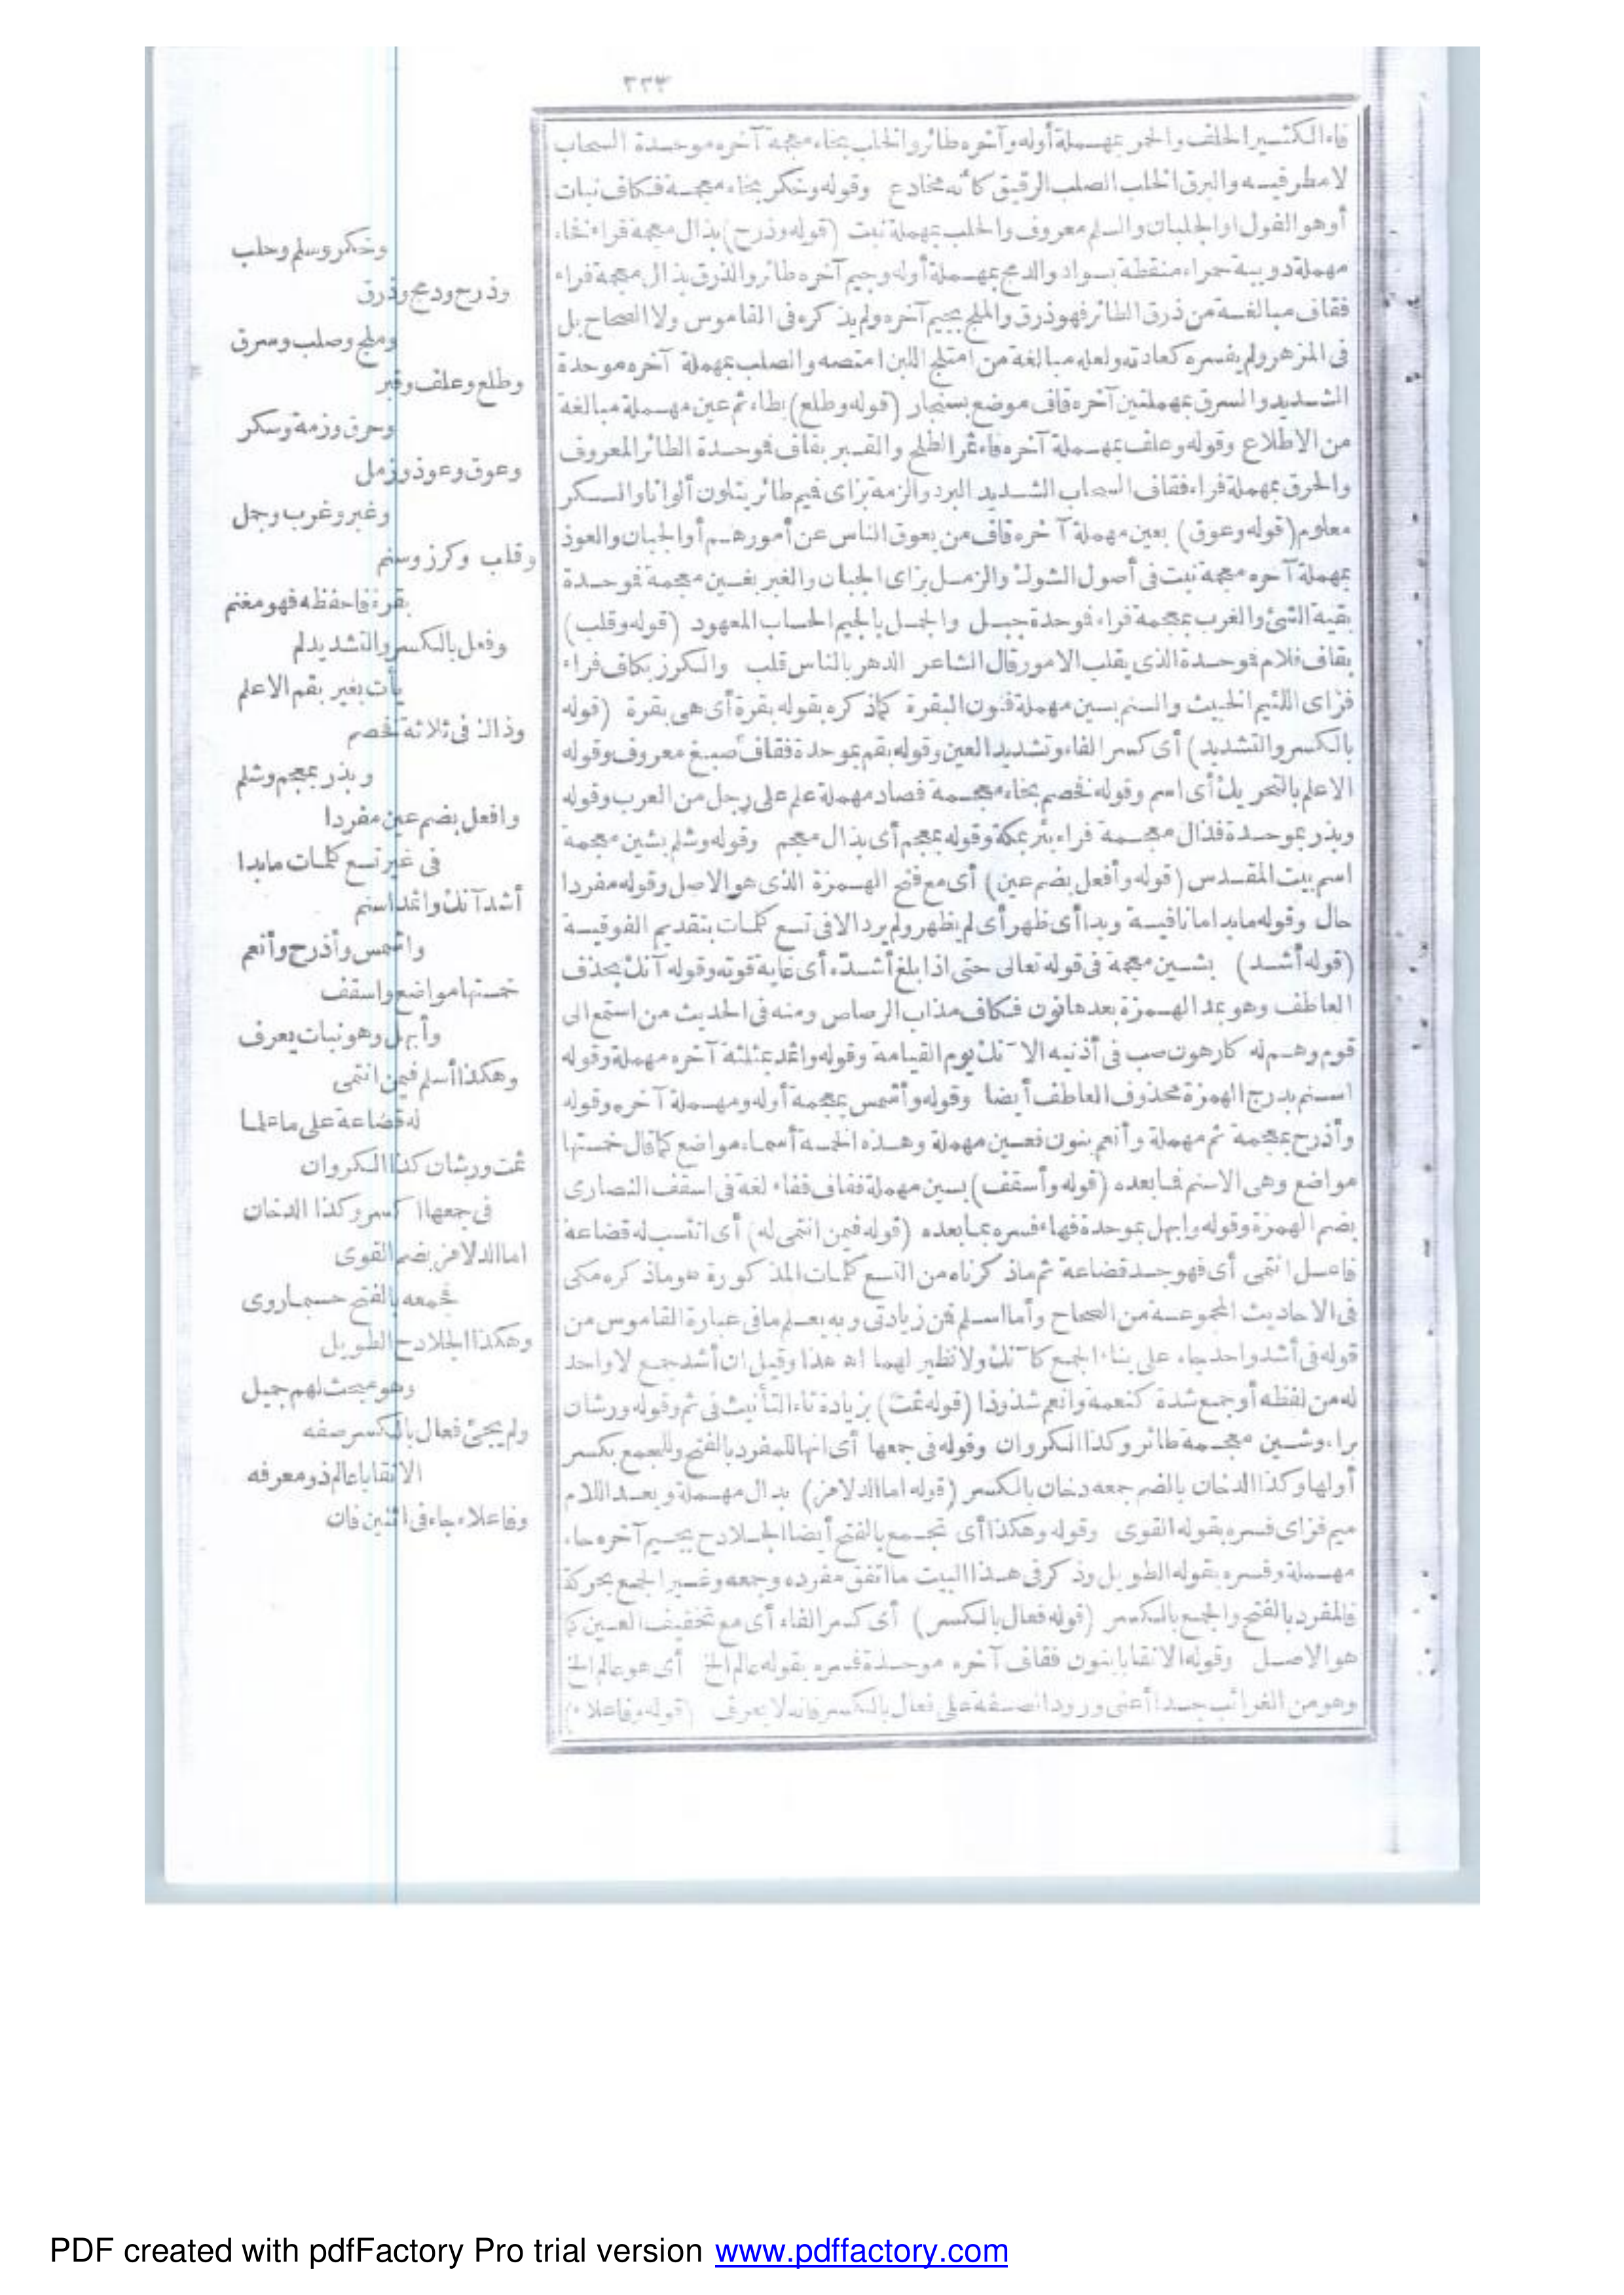 ٣٣٣
فاء الكثير الحلف والحمر بمهملة أوله وآخره طائر والخلب بخاء معجمة آخره موحدة السحاب
لا مطر فيه والبرق الخلب الصلب الرقيق كأنه مخادع وقوله وخكر بخاء معجمة فكاف نبات
أو هو الفول او الجلبان والسلم معروف والحلب بمهملة نبت (قوله وذرح) بذال معجمة فراء فحاء
مهملة دويبة حمراء منقطة بسواد والدمج بمهملة أوله وجيم آخره طائر والذرق بذال معجمة فراء
فقاف مبالغة من ذرق الطائر فهو ذرق والملج بجيم آخره ولم يذكره فى القاموس ولا الصحاح بل
فى المزهر ولم يفسره كعادته ولعله مبالغة من امتلج اللبن امتصه والصلب بمهملة آخره موحدة
الشديد والسرق بمهملتين آخره قاف موضع بسنجار (قوله وطلع) بطاء ثم عين مهملة مبالغة
من الاطلاع وقوله وعلف بمهملة آخره فاء ثمر الطلح والقبر بقاف فوحدة الطائر المعروف
والحرق بمهملة فراء فقاف السحاب الشديد البرد والزمة بزاى فيم طائر يتلون ألوانا والسكر
معلوم (قوله وعوق) بعين مهملة آخره قاف من يعوق الناس عن أمورهم أو الجبان والعوذ
بمهملة آخره معجمة نبت فى أصول الشوك والزمل بزاى الجبان والغبر بغين معجمة فوحدة
بقية الشئ والغرب بمعجمة فراء فوحدة جبل والجمل بالجيم الحساب المعهود (قوله وقلب)
بقاف فلام فوحدة الذى يقلب الامور قال الشاعر الدهر بالناس قلب والكرز بكاف فراء
فزاى اللئيم الخبيث والسنم بسين مهملة فنون البقرة كما ذكره بقوله بقرة أى هى بقرة (قوله
بالكسر والتشديد) أى كسر الفاء وتشديد العين وقوله بقم بموحدة فقاف صبغ معروف وقوله
الاعلم بالتحريك أى اسم وقوله فخصم بخاء معجمة فصاد مهملة علم على رجل من العرب وقوله
وبذر بموحدة فذال معجمة فراء بئر بمكة وقوله بمعجم أى بذال معجم وقوله وشلم بشين معجمة
اسم بيت المقدس (قوله وأفعل بضم عين) أى مع فتح الهمزة الذى هو الاصل وقوله مفردا
حال وقوله ما بدا ما نافية وبدا أى ظهر أى لم يظهر ولم يرد الا فى تسع كلمات بتقديم الفوقية
(قوله أشد) بشين معجمة فى قوله تعالى حتى اذا بلغ أشده أى غاية قوته وقوله آنك بحذف
العاطف وهو بمد الهمزة بعدها نون فكاف مذاب الرصاص ومنه فى الحديث من استمع الى
قوم وهم له كارهون صب فى أذنيه الآنك يوم القيامة وقوله واثمد بمثلثة آخره مهملة وقوله
اسنم بدرج الهمزة محذوف العاطف أيضا وقوله وأشمس بمعجمة أوله ومهملة آخره وقوله
وأذرح بمعجمة ثم مهملة وأنعم بنون فعين مهملة وهذه الخمسة أسماء مواضع كما قال خمستها
مواضع وهى الاسنم فما بعده (قوله وأسقف) بسين مهملة فقاف ففاء لغة فى اسقف النصارى
بضم الهمزة وقوله وابهل بموحدة فهاء فسره بما بعده (قوله فيمن انتمى له) أى انتسب له قضاعة
فاعل انتمى أى فهو جد قضاعة ثم ماذكرناه من التسع كلمات المذكورة هو ماذكره مكى
فى الاحاديث المجموعة من الصحاح وأما اسلم فمن زيادتى وبه يعلم مافى عبارة القاموس من
قوله فى أشد واحد جاء على بناء الجمع كآنك ولا نظير لهما اه هذا وقيل ان أشد جمع لا واحد
له من لفظه أو جمع شدة كنعمة وانعم شذوذا (قوله ثمت) بزيادة تاء التأنيث فى ثم وقوله ورشان
براء وشين معجمة طائر وكذا الكروان وقوله فى جمعها أى انها للمفرد بالفتح وللجمع بكسر
أولها وكذا الدخان بالضم جمعه دخان بالكسر (قوله اما الدلامز) بدال مهملة وبعد اللام
ميم فزاى فسره بقوله القوى وقوله وهكذا أى تجمع بالفتح أيضا الجلادح بجيم آخره حاء
مهملة وفسره بقوله الطويل وذكر فى هذا البيت ما اتفق مفرده وجمعه وغير الجمع بحركة
فالمفرد بالفتح والجمع بالكسر (قوله فعال بالكسر) أى كسر الفاء أى مع تخفيف العين كما
هو الاصل وقوله الانقابا بنون فقاف آخره موحدة فسره بقوله عالم الخ أى هو عالم الخ
وهو من الغرائب جدا أعنى ورود الصفة على فعال بالكسر فانه لا يعرف (قوله وفاعلاء)
وخكر وسلم وحلب
وذرح ودمج وذرق
وملج وصلب وسرق
وطلع وعلف وقبر
وحرق وزمة وسكر
وعوق وعوذ وزمل
وغبر وغرب وجمل
وقلب وكرز وسنم
بقرة فاحفظه فهو مغنم
وفعل بالكسر والتشديد لم
يأت بغير بقم الاعلم
وذاك فى ثلاثة فخصم
وبذر بمعجم وشلم
وافعل بضم عين مفردا
فى غير تسع كلمات ما بدا
أشد آنك واثمد اسنم
واشمس وأذرح وأنعم
خمستها مواضع واسقف
وأبهل وهو نبات يعرف
وهكذا أسلم فيمن انتمى
له قضاعة على ما علما
ثمت ورشان كذا الكروان
فى جمعها اكسر وكذا الدخان
اما الدلامز بضم القوى
فجمعه بالفتح حسبما روى
وهكذا الجلادح الطويل
وهو مبحث لهم جميل
ولم يجئ فعال بالكسر صفه
الا نقابا عالم ذو معرفه
وفاعلاء جاء فى اثنين فان
PDF created with pdfFactory Pro trial version www.pdffactory.com